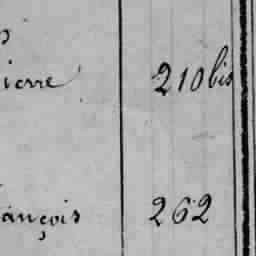 ierre 210 bis
ançois 262